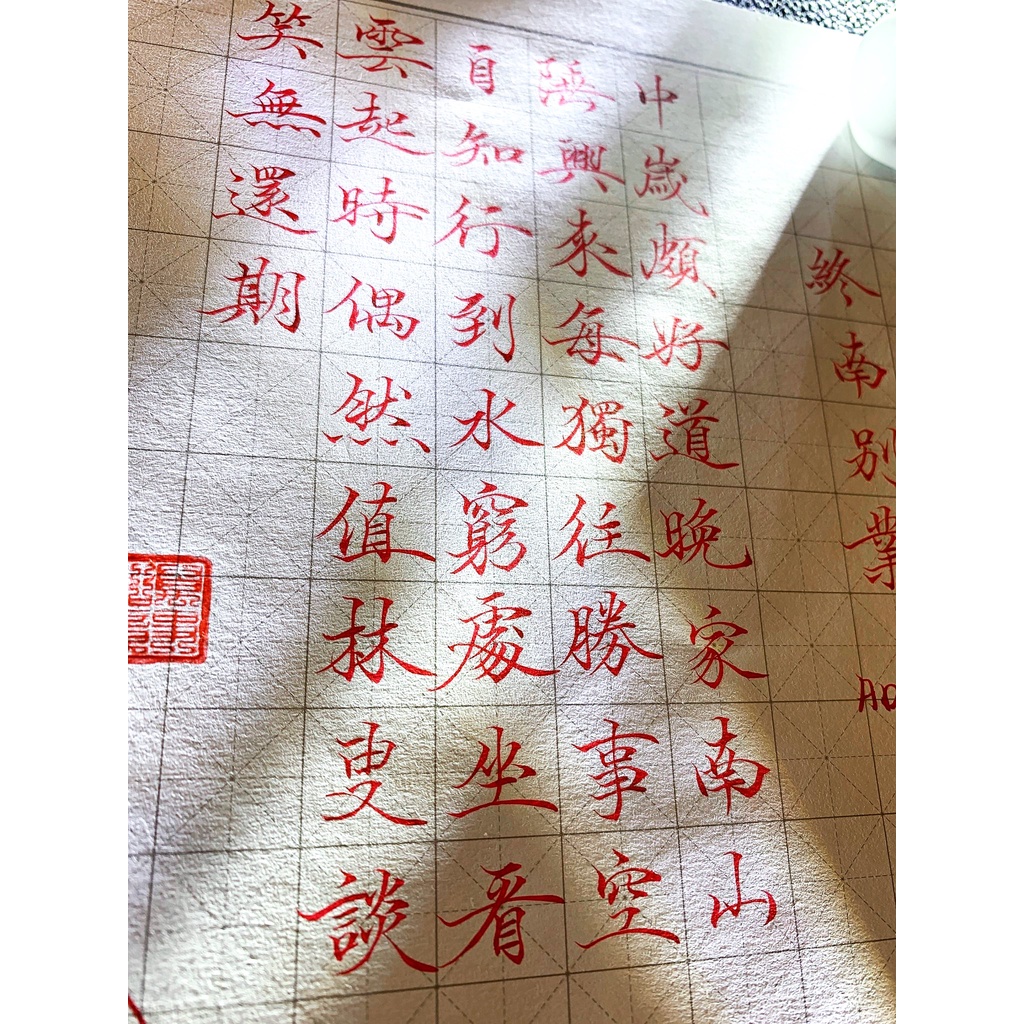 終南別業
中歲頗好道晚家南山
陲興來每獨往勝事空
自知行到水窮處坐看
雲起時偶然值林叟談
笑無還期